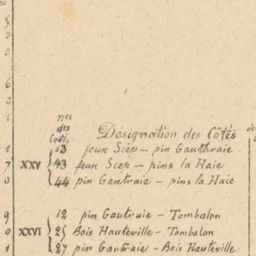 nos
des
Côtés
Désignation des Côtés
13 feux Scep – pin Gauthraie
XXV 43 feux Scep – pins la Haie
44 pin Gautraie – pins la Haie
12 pin Gautraie – Tombalon
XXVI 25 Bois Hauteville – Tombalon
27 pin Gautraie – Bois Hauteville